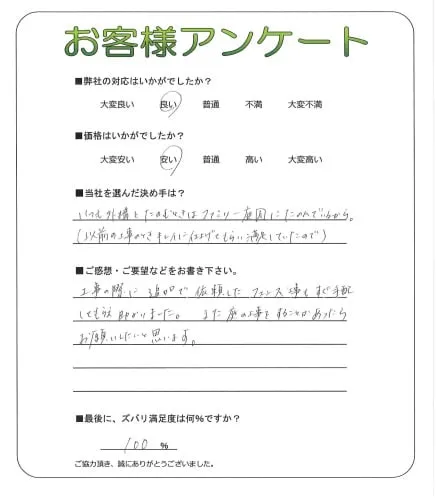 お客様アンケート
■弊社の対応はいかがでしたか？
大変良い 良い 普通 不満 大変不満
■価格はいかがでしたか？
大変安い 安い 普通 高い 大変高い
■当社を選んだ決め手は？
いつも外構をたのむときはファミリー庭園にたのんでいるから。
(以前の工事のときキレイに仕上げてもらい満足していたので)
■ご感想・ご要望などをお書き下さい。
工事の際に追加で依頼したフェンス工事もすぐ手配
してもらえ助かりました。また庭の工事をすることがあったら
お願いしたいと思います。
■最後に、ズバリ満足度は何％ですか？
100 %
ご協力頂き、誠にありがとうございました。